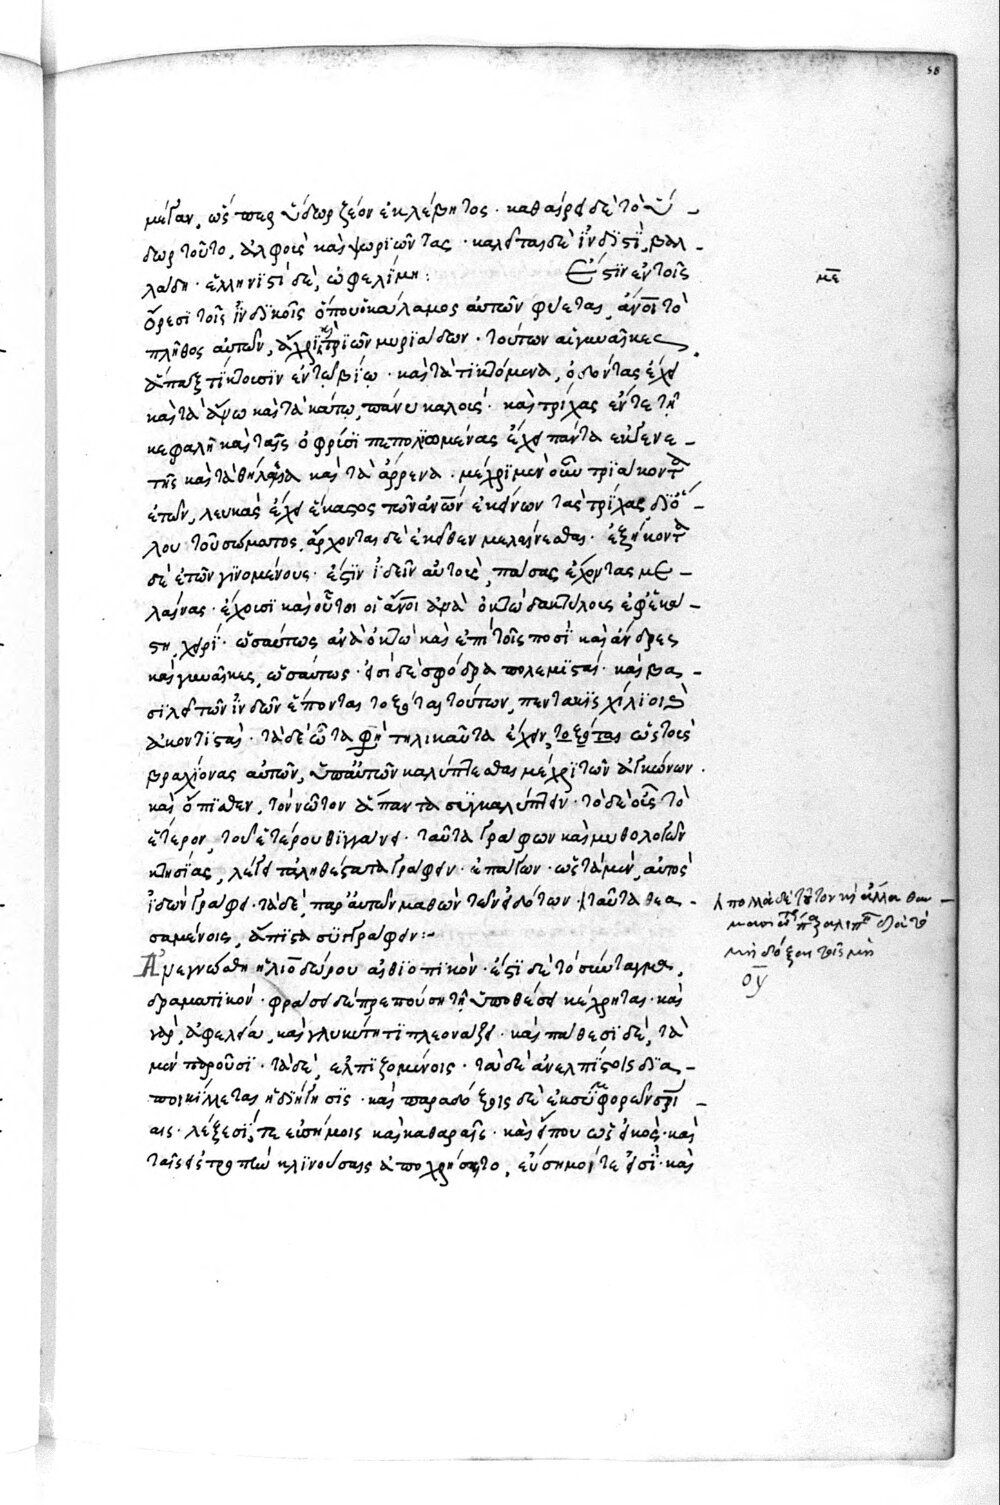 58
μέγαν, ὥσπερ ὕδωρ ζέον ἐκ λέβητος · καθαίρει δὲ τὸ ὕ –
δωρ τοῦτο, ἀλφοὺς καὶ ψωριῶντας · καλεῖται δὲ ἰνδϊστὶ, βαλ –
λάδη · ἑλληνϊστὶ δὲ, ὠφελίμη : Ἐστϊν ἐν τοῖς
με
ὄρεσι τοῖς ἰνδϊκοῖς ὅπου ὁ κάλαμος αὐτῶν φύεται, ἄνοι τὸ
πλῆθος αὐτῶν, ἄχρϊ τρϊῶν μυρϊάδων · τούτων αἱ γυναῖκες
ἅπαξ τίκτουσϊν ἐν τῷ βίῳ · καὶ τὰ τϊκτόμενα, ὀδόντας ἔχει
καὶ τὰ ἄνω καὶ τὰ κάτω, πάνυ καλοὺς · καὶ τρίχας ἔν τε τῇ
κεφαλῇ καὶ ταῖς ὀφρύσϊ πεπολϊωμένας ἔχει πάντα ἐκ γενε –
τῆς καὶ τὰ θήλεα καὶ τὰ ἄρρενα · μέχρϊ μὲν οὖν τρϊάκοντα
ἐτῶν, λευκὰς ἔχει ἕκαστος τῶν ἀνῶν ἐκείνων τὰς τρίχας δϊό –
λου τοῦ σώματος, ἄρχονται δὲ ἐκεῖθεν μελαίνεσθαι · ἑξήκοντα
δὲ ἐτῶν γϊνομένους · ἔστϊν ἰδεῖν αὐτοὺς, πάσας ἔχοντας με –
λαίνας · ἔχουσϊ καὶ οὗτοι οἱ ἄνοι ἀνὰ ὀκτὼ δακτύλους ἐφ' ἑκά –
στῃ χειρί · ὡσαύτως ἀνὰ ὀκτὼ καὶ ἐπὶ τοῖς ποσὶ καὶ ἄνδρες
καὶ γυναῖκες, ὡσαύτως · εἰσὶ δὲ σφόδρα πολεμϊσταὶ · καὶ βα –
σϊλεῖ τῶν ἰνδῶν ἕπονται τοξόται τούτων, πεντακϊς χίλϊοι καὶ
ἀκοντϊσταὶ · τὰ δὲ ὦτα φησὶ τηλικαῦτα ἔχειν, τοξόται ὥστε τοὺς
βραχίονας αὐτῶν, ὑπ' αὐτῶν καλύπτεσθαι μέχρϊ τῶν ἀγκώνων ·
καὶ ὄπϊσθεν, τὸν νῶτον ἅπαντα συγκαλύπτειν · τὸ δὲ οὖς τὸ
ἕτερον, τοῦ ἑτέρου θϊγγάνει · ταῦτα γράφων καὶ μυθολογῶν
κτησίας, λέγει τἀληθέστατα γράφειν · ἐπάγων · ὡς τὰ μὲν, αὐτὸς
ἰδὼν γράφει · τὰ δὲ, παρ' αὐτῶν μαθὼν τῶν εἰδότων · ταῦτα θεα –
πολλὰ δὲ τούτων καὶ ἄλλα θαυ –
μασιώτερα παραλιπεῖν διὰ τὸ
μὴ δόξαι τοῖς μὴ
ου
σαμένοις, ἄπϊστα συγγράφειν :–
Ἀνεγνώσθη ἡλιοδώρου αἰθϊοπϊκόν · ἔστϊ δὲ τὸ σύνταγμα,
δραματϊκόν · φράσει δὲ πρεπούσῃ τῇ ὑποθέσει κέχρηται · καὶ
γὰρ, ἀφελείᾳ, καὶ γλυκύτητϊ πλεονάζει · καὶ πάθεσι δὲ, τὰ
μὲν παροῦσϊ · τὰ δὲ, ἐλπϊζομένοις · τὰ δὲ ἀνελπϊστοις δϊα –
ποικίλλεται ἡ δϊήγησϊς · καὶ παραδόξοις δὲ ἐκ συμφορῶν σρϊ –
αις · λέξεσϊ τε εὐσήμοις καὶ καθαραῖς · καὶ εἴ που ὡς εἰκὸς · καὶ
ταῖς εἰς τροπὴν κλϊνούσαις ἀποχρήσαιτο, εὔσημοί τε εἰσϊ · καὶ